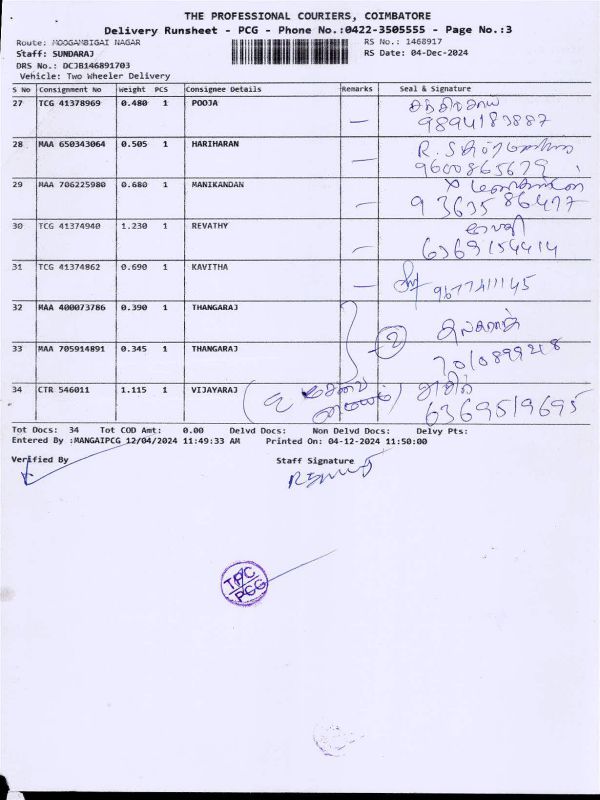 THE PROFESSIONAL COURIERS, COIMBATORE
Delivery Runsheet - PCG - Phone No.:0422-3505555 - Page No.:3
Route: MOOGAMBIGAI NAGAR RS No.: 1468917
Staff: SUNDARAJ RS Date: 04-Dec-2024
DRS No.: DCJB146891703
Vehicle: Two Wheeler Delivery
S No Consignment No Weight PCS Consignee Details Remarks Seal & Signature
27 TCG 41378969 0.480 1 POOJA
9894183887
28 MAA 650343064 0.505 1 HARIHARAN
9600865679
29 MAA 706225980 0.680 1 MANIKANDAN
9363586477
30 TCG 41374940 1.230 1 REVATHY ரேவதி
6369154414
31 TCG 41374862 0.690 1 KAVITHA
9677411145
32 MAA 400073786 0.390 1 THANGARAJ
2
33 MAA 705914891 0.345 1 THANGARAJ
7010899248
34 CTR 546011 1.115 1 VIJAYARAJ
6369519695
Tot Docs: 34 Tot COD Amt: 0.00 Delvd Docs: Non Delvd Docs: Delvy Pts:
Entered By :MANGAIPCG 12/04/2024 11:49:33 AM Printed On: 04-12-2024 11:50:00
Verified By Staff Signature
TPC
PCG